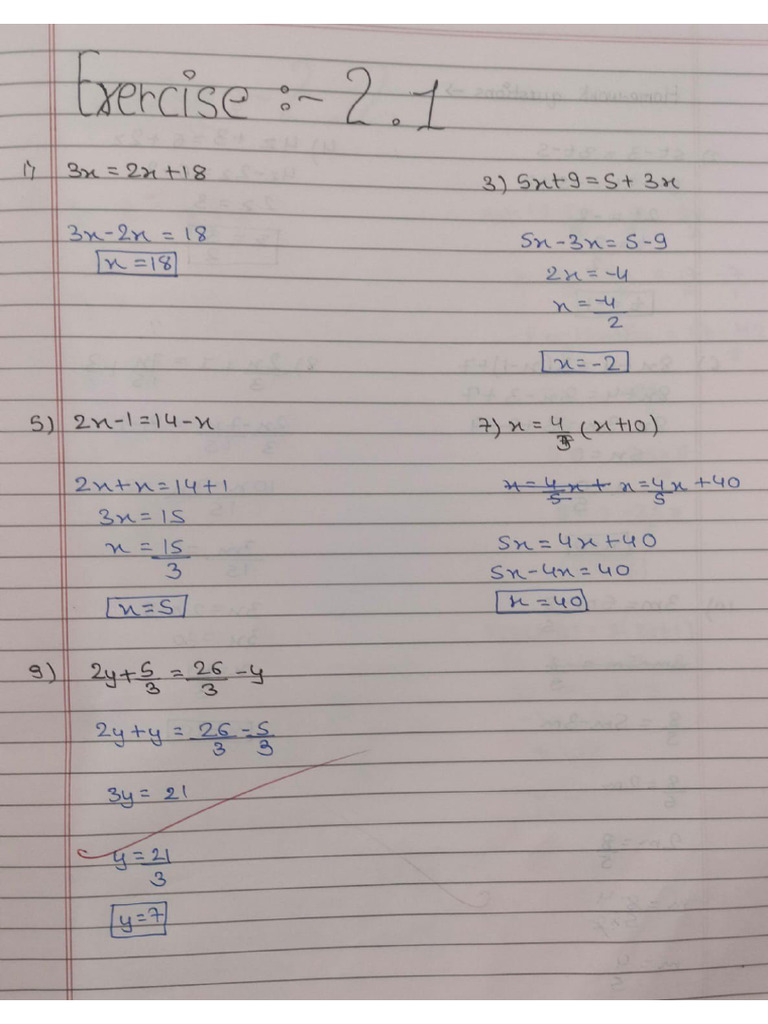 Exercise :- 2.1
1) 3x = 2x + 18
3x - 2x = 18
x = 18
3) 5x + 9 = 5 + 3x
5x - 3x = 5 - 9
2x = -4
x = -4/2
x = -2
5) 2x - 1 = 14 - x
2x + x = 14 + 1
3x = 15
x = 15/3
x = 5
7) x = 4/5 (x + 10)
x = 4/5 x + x = 4/5 x + 40
5x = 4x + 40
5x - 4x = 40
x = 40
9) 2y + 5/3 = 26/3 - y
2y + y = 26/3 - 5/3
3y = 21
y = 21/3
y = 7